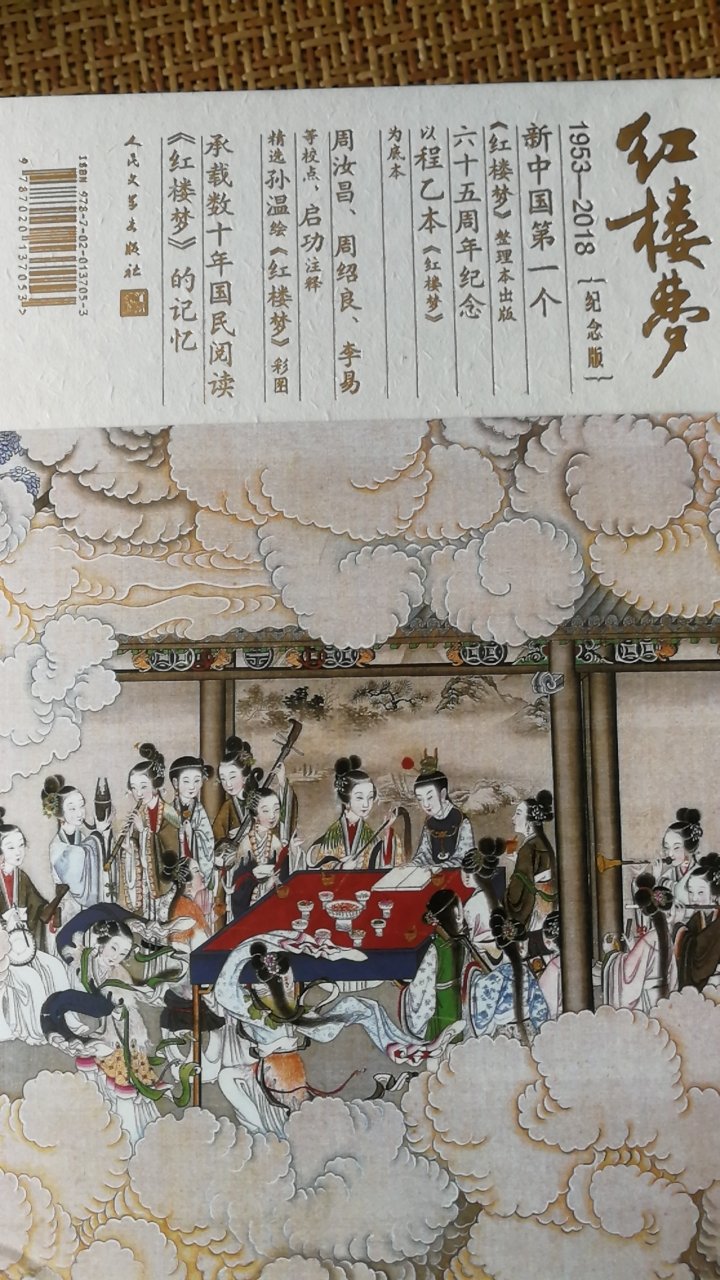 红楼梦
{纪念版}
1953—2018
新中国第一个
《红楼梦》整理本出版
六十五周年纪念
以程乙本《红楼梦》
为底本
周汝昌、周绍良、李易
等校点、启功注释
精选孙温绘《红楼梦》彩图
承载数十年国民阅读
《红楼梦》的记忆
人民文学出版社
ISBN 978-7-02-013705-3
9 787020 137053 >